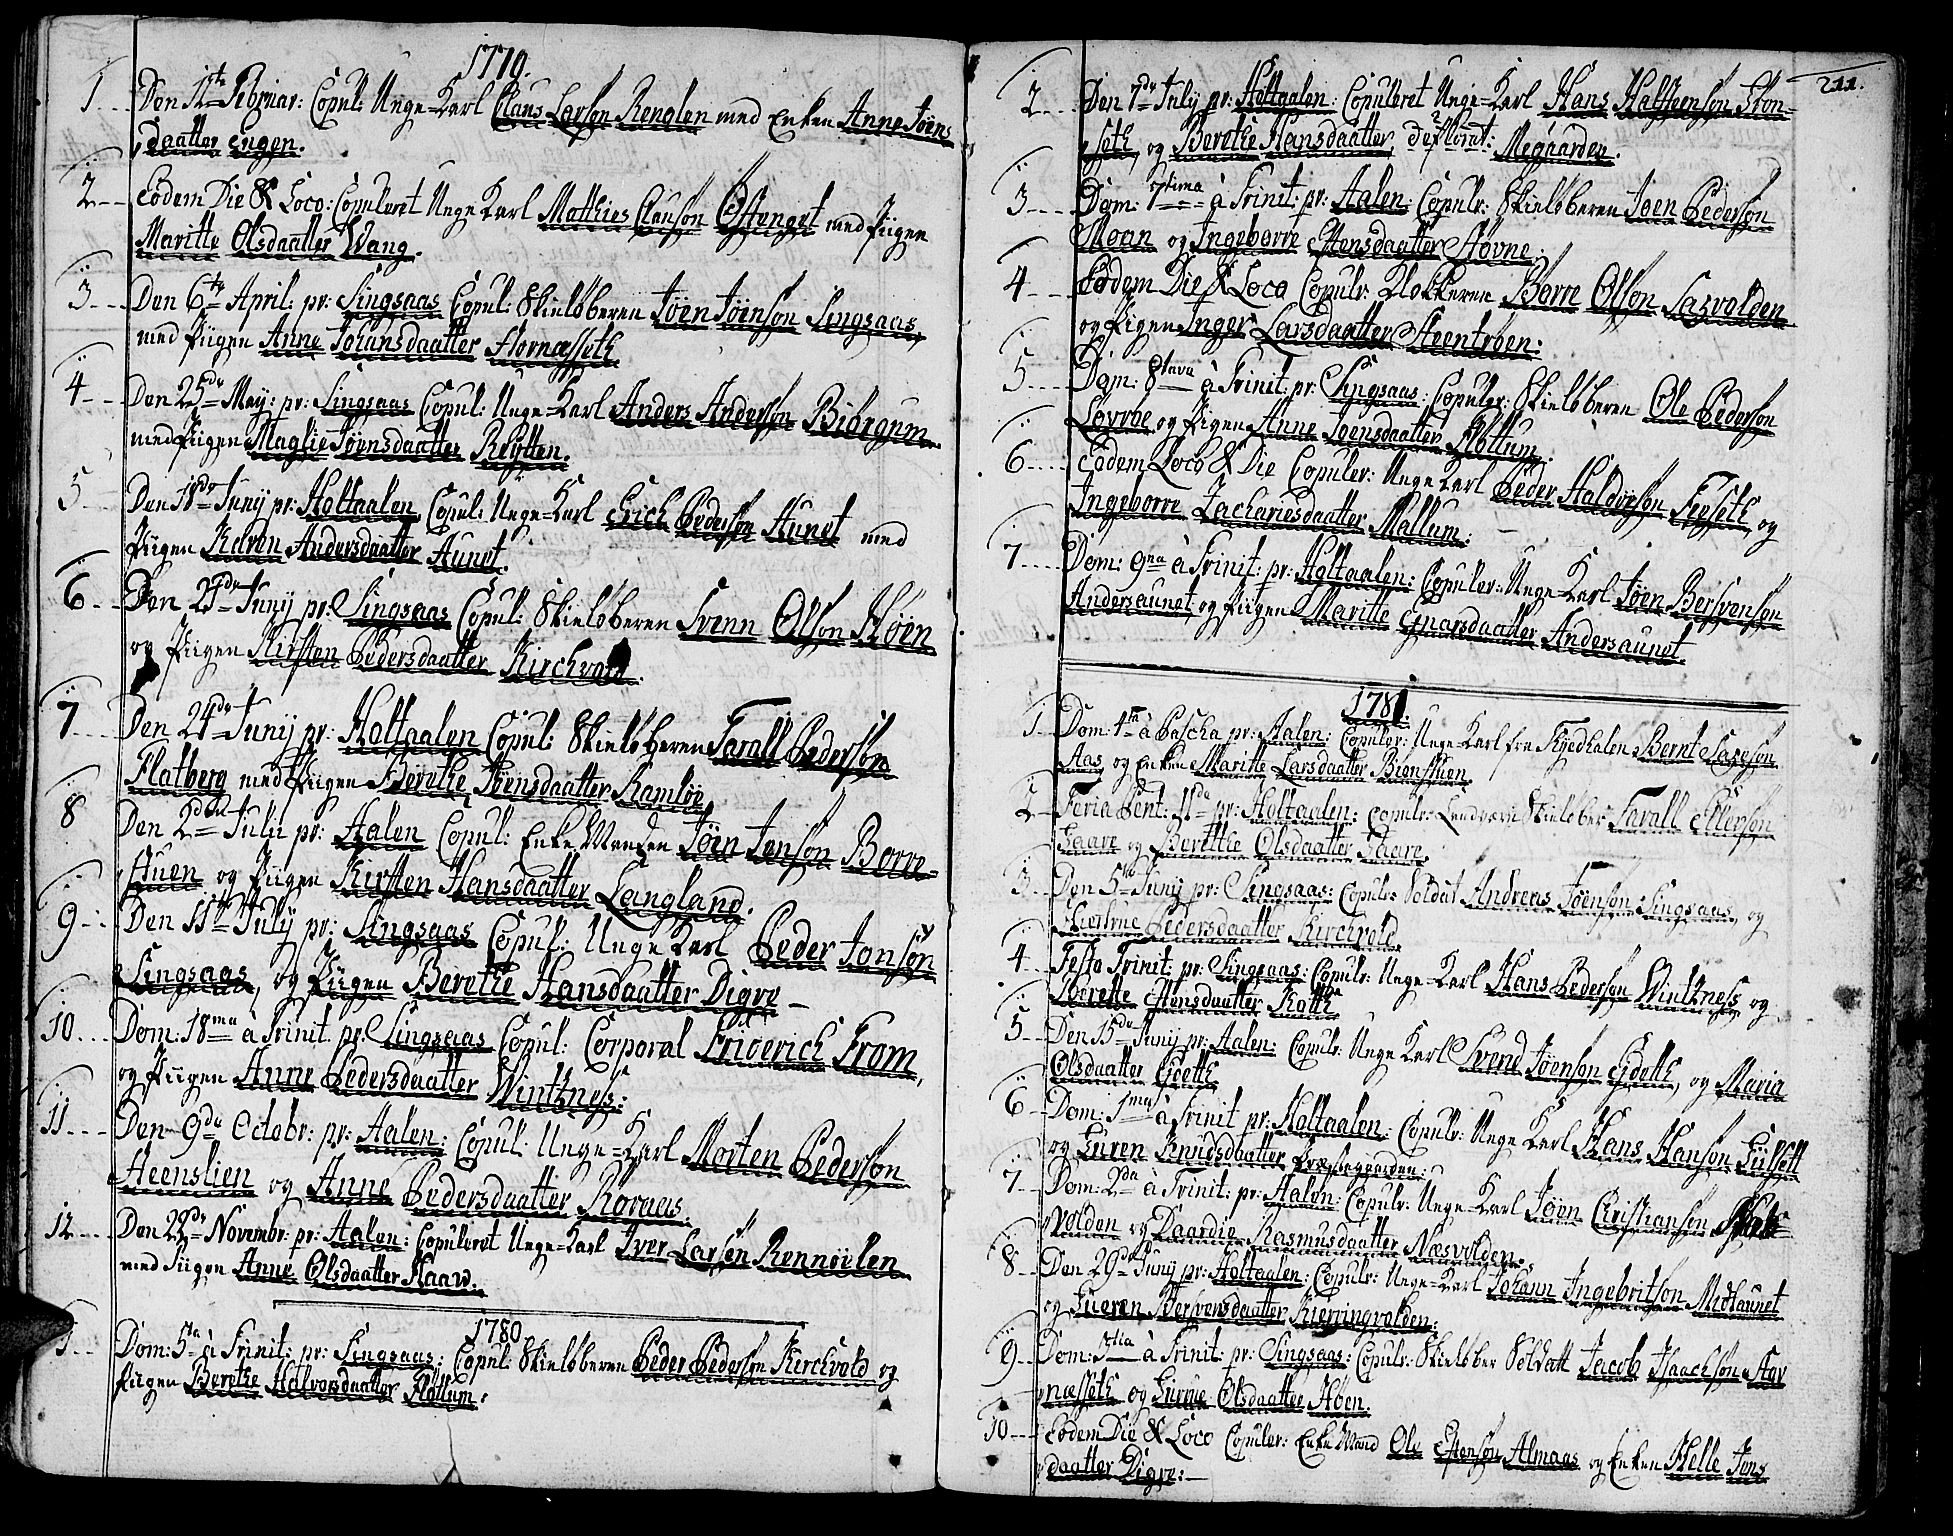 1779.
1 Den 1ste Februar: Copul: Unge=Karl Claus Larsøn Renglen med Enken Anne Jøens
daatter Engen.
2 Eodem Die & Loco: Copuleret Unge Karl Mathies Clausøn Østenget med Piigen
Maritte Olsdaatter Wang.
3 Den 6te April: pr: Singsaas Copul: Skieløberen Jøen Jøensøn Singsaas,
med Piigen Anne Johansdaatter Hovnæsseth
4 Den 25de May: pr: Singsaas Copul: Unge=Karl Anders Andersøn Bibrgum
med Piigen Maglie Jøensdaatter Reytten.
5 Den 18de Junÿ pr: Holtaalen Copul: Unge=Karl Erich Pedersøn Aunet med
Piigen Karen Andersdaatter Aunet.
6 Den 23de Junÿ pr: Singsaas Copul: Skieløberen Svenn Olsøn Høen
og Piigen Kirsten Pedersdaatter Kirchvold.
7 Den 24de Junÿ pr: Holtaalen Copul: Skieløberen Farall Pedersøn
Flatberg med Piigen Berethe Jøensdaatter Ramløe
8 Den 2den Julii pr: Aalen Copul: Enke Manden Jøen Jonsøn Borre-
stuen og Piigen Kirsten Hansdaatter Langland.
9 Den 11te Julÿ pr: Singsaas Copul: Unge Karl Peder Jonsøn
Singsaas, og Piigen Berethe Hansdaatter Digre
10 Dom: 18ma à Trinit. pr. Singsaas Copul: Corporal Friderich From,
og Piigen Anne Pedersdaatter Wintzness:
11 Den 9de Octobr: pr: Aalen: Copul: Unge=Karl Morten Pedersøn
Heenslien og Anne Pedersdaatter Roraas.
12 Den 22de Novembr: pr: Aalen: Copuleret Unge=Karl Iver Larsøn Rennølen
med Piigen Anne Olsdaatter Haaw.
1780
1 Dom: 5ta à Trinit: pr: Singsaas: Copul: Skieløberen Peder Pedersøn Kirchvold og
Piigen Berethe Halvorsdaatter Flottum:
211.
2 Den 7de Julÿ pr: Holtaalen: Copuleret Unge=Karl Hans Halfsteensøn Ston-
seth, og Berethe Hansdaatter, deflorat: Møgaarden.
3 Dom: 7tima à Trinit: pr: Aalen: Copulr: Skieløberen Joen Pedersøn
Moan og Ingeborre Stensdaatter Hovne.
4 Eodem Die & Loco Copulr: Klokkeren Borre Olsøn Lasvolden
og Piigen Inger Larsdaatter Steentroen:
5 Dom: 8tava à Trinit: pr: Singsaas: Copuler: Skieløberen Ole Pedersøn
Løvroe og Piigen Anne Joensdaatter Flottum.
6 Eodem Loco & Die Copuler: Unge Karl Peder Haldorsøn Fieseth, og
Ingeborre Zachariesdaatter Mallum.
7 Dom: 9na à Trinit: pr: Holtaalen: Copuler: Unge=Karl Jøen Bersvensøn
Andersaunet, og Piigen Maritte Gunarsdaatter Andersaunet.
1781.
1 Dom: 1ta à Pascha pr: Aalen: Copuler: Unge=Karl fra Tyedhalen Bernt
Aas og Enken Maritte Larsdaatter Bienstuen.
2 Feria Pent: IIda pr: Holtaalen: Copulr: Landværn Skieløber Farall Ellensøn
Gaare og Berethe Olsdaatter Gaare.
3 Den 5te Junÿ pr: Singsaas: Copulr: Soldat Andreas Jøensøn Singsaas, og
Giertrue Pedersdaatter Kirchvold.
4 Festo Trinit: pr: Singsaas: Copulr: Unge Karl Hans Pedersøn Wintzness og
Berette Stensdaatter Kotth
5 Den 15de Junÿ pr: Aalen: Copulr: Unge Karl Svend Jøensøn Gieth, og Maria
Olsdaatter Gieth
6 Dom: 1ma à Trinit pr: Holtaalen: Copulr: Unge Karl Hans Hansøn Giilsett
og Guren Knudsdaatter Præstegaarden:
7 Dom: 2da à Trinit: pr: Aalen: Copulr: Unge=Karl Jøen Christiansøn
volden og Daardie Rasmusdaatter Næsvolden.
8 Den 29de Junÿ pr: Holtaalen: Copulr: Unge=Karl Johann Ingebritsøn Midtaunet
og Gueren Bersvensdaatter Kierringvolden.
9 Dom: 3tia à Trinit: pr: Singsaas: Copulr: Skieløber Soldatt Jacob Isaachsøn Hov
næsseth og Gurrue Olsdaatter Høen.
10 Eodem Die & Loco Copuler: Enke Mand Ole Stensøn Almaas og Enken Helle Jons
daatter Digre: